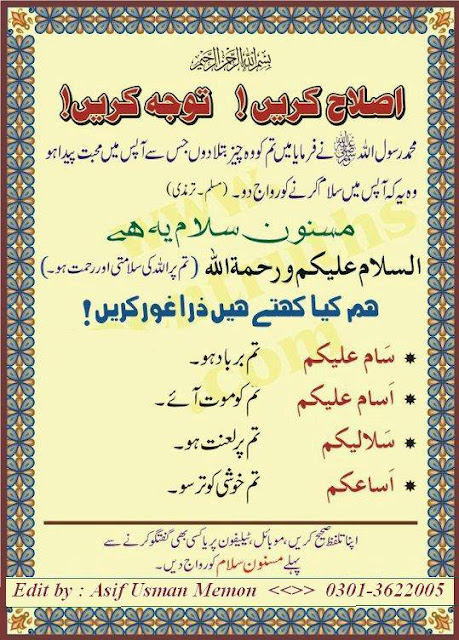 بسم اللہ الرحمن الرحیم
اصلاح کریں! توجہ کریں!
محمد رسول اللہ ﷺ نے فرمایا میں تم کو وہ چیز بتلا دوں جس سے آپس میں محبت پیدا ہو
وہ یہ کہ آپس میں سلام کرنے کو رواج دو۔ (مسلم۔ترمذی)
مسنون سلام یہ ہے
السلام علیکم ورحمۃ اللہ (تم پر اللہ کی سلامتی اور رحمت ہو۔)
ہم کیا کہتے ہیں ذرا غور کریں!
* سَام علیکم تم برباد ہو۔
* اَسام علیکم تم کو موت آئے۔
* سَلالیکم تم پر لعنت ہو۔
* اَساعکم تم خوشی کو ترسو۔
اپنا تلفظ صحیح کریں، موبائل، ٹیلیفون پر یا کسی بھی گفتگو کرنے سے
پہلے مسنون سلام کو رواج دیں۔
Edit by : Asif Usman Memon <<>> 0301-3622005